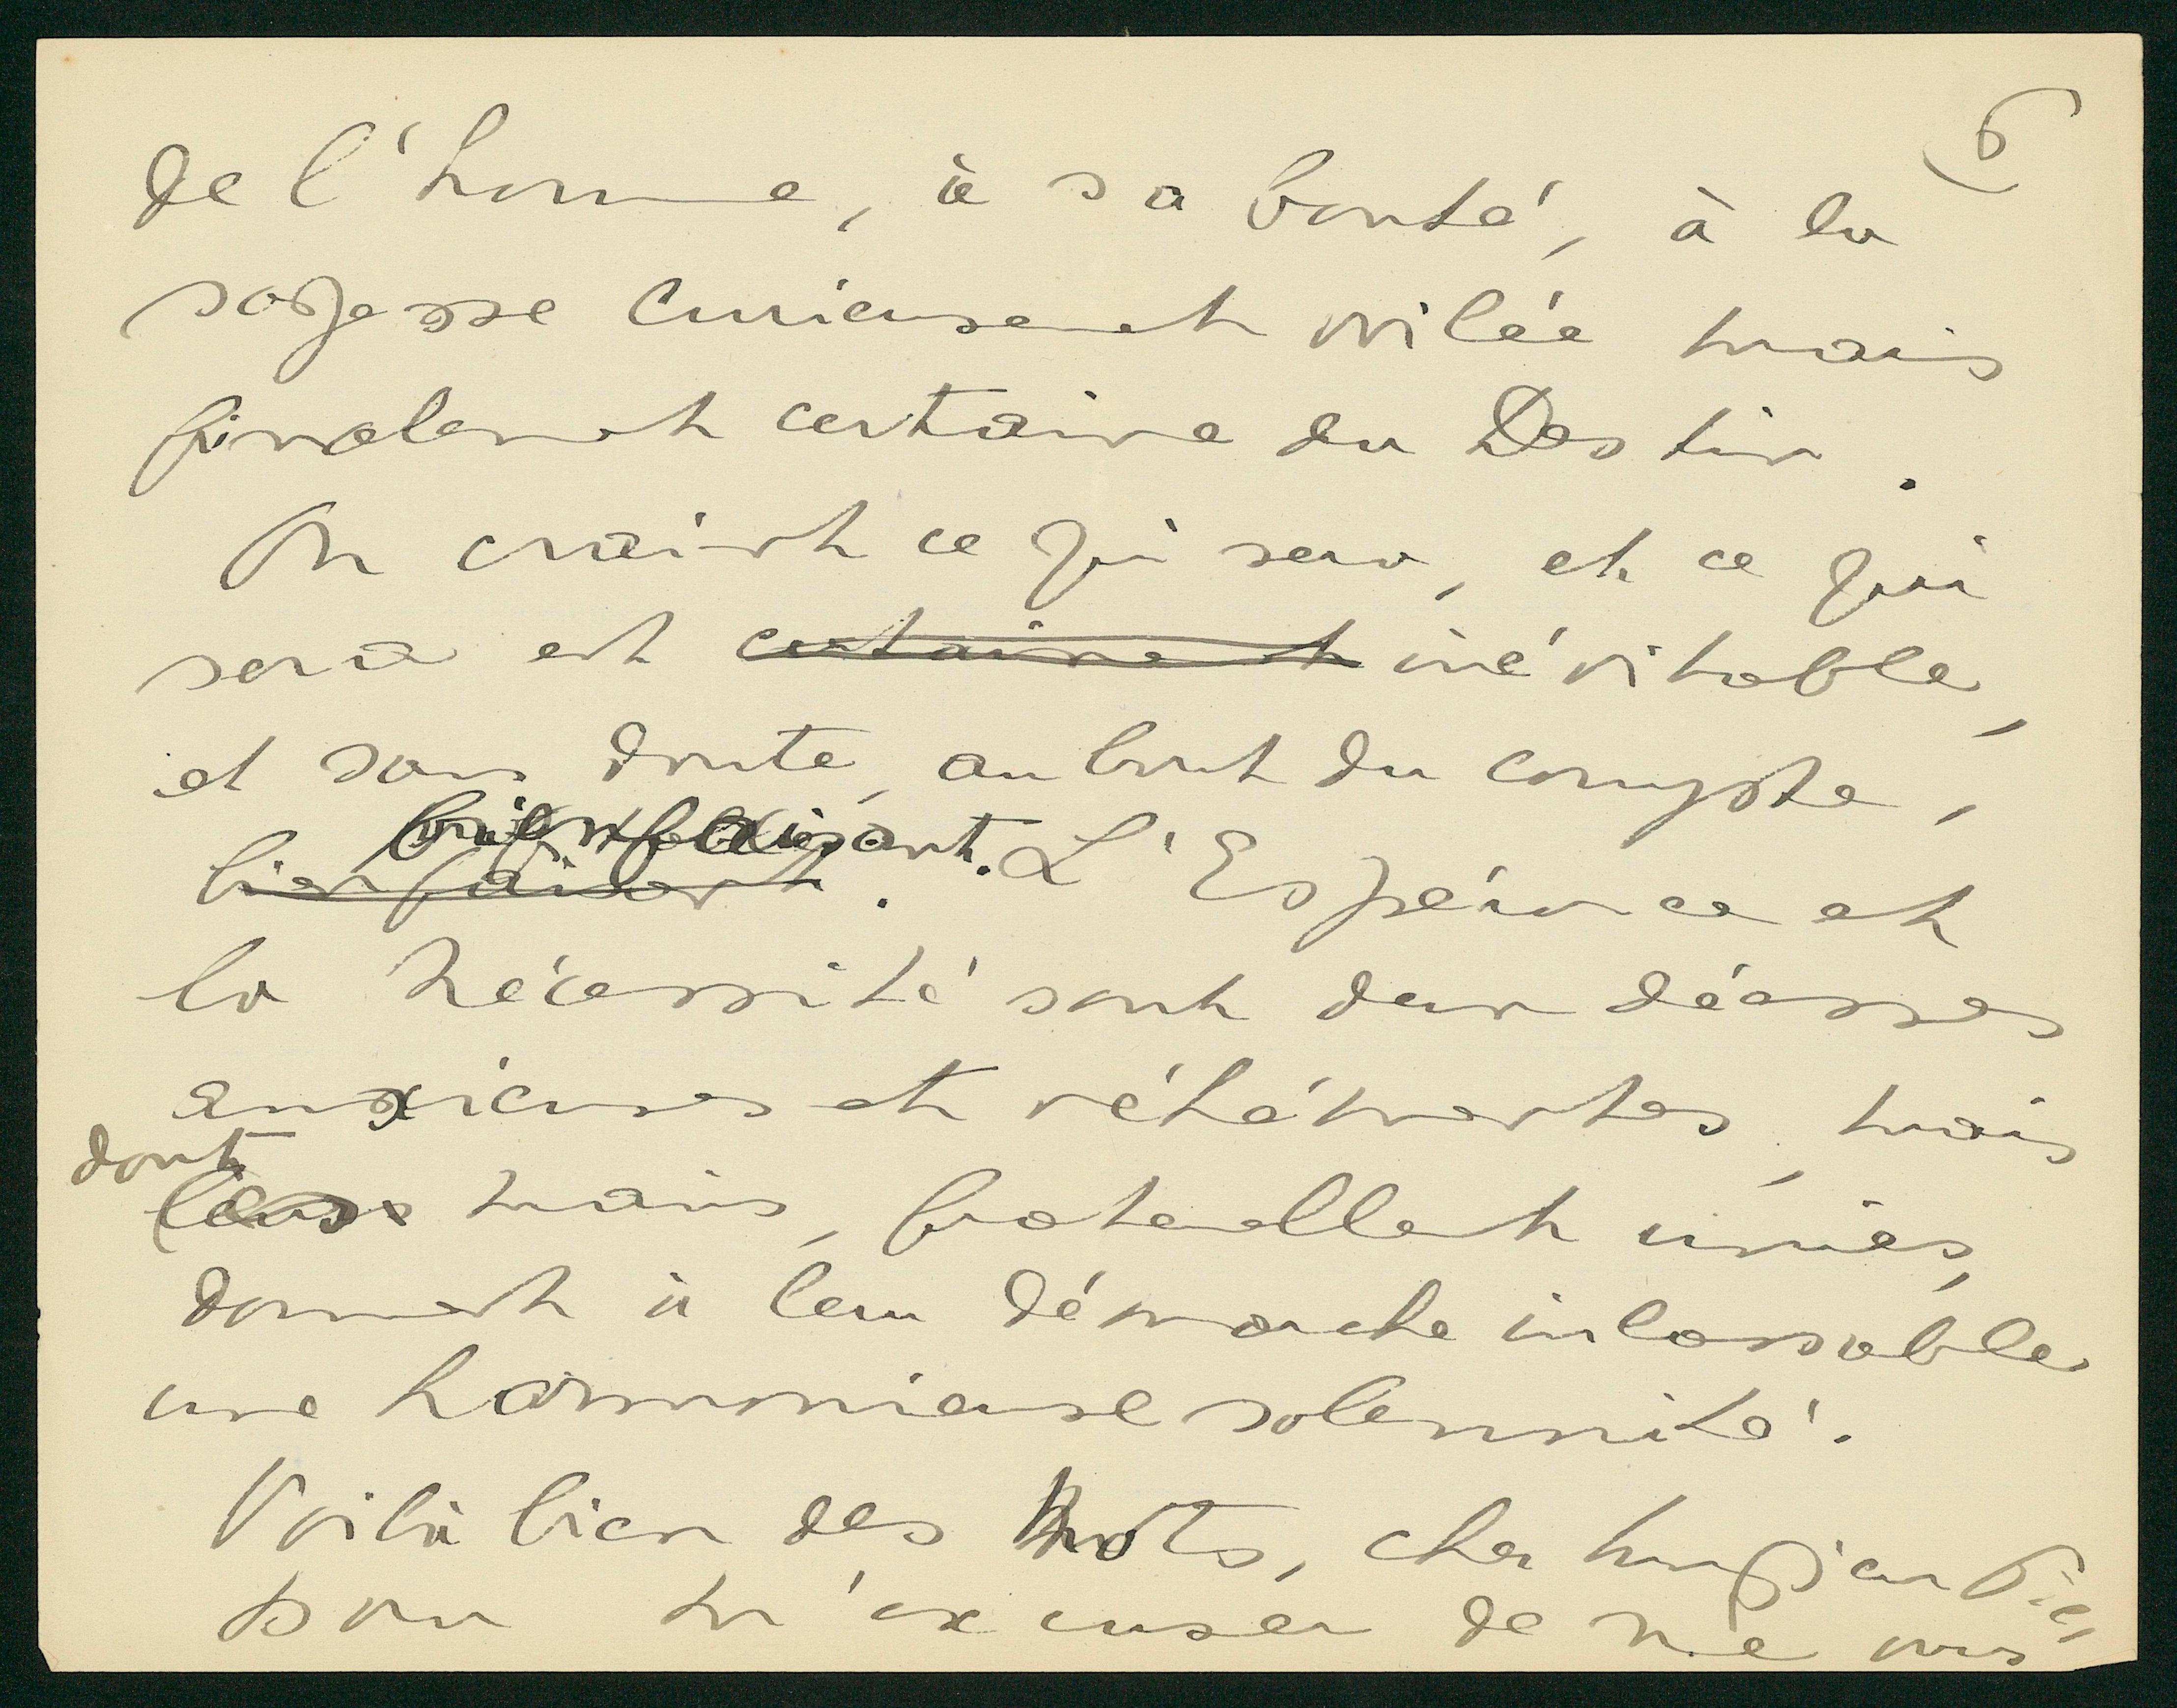 6
de l'homme, à sa bonté, à la
sagesse curieusement voilée mais
finalement certaine du Destin.
On craint ce qui sera, et ce qui
sera est certainement inévitable,
et sans doute, au bout du compte,
bienfaisant.
bienfaisant. L'Espérance et
la Nécessité sont deux déesses
anxieuses et véhémentes, mais
dont
leurs mains, fraternellement unies,
donnent à leur démarche inlassable
une harmonieuse solennité.
Voilà bien des mots, cher
pour m'excuser de ne vous